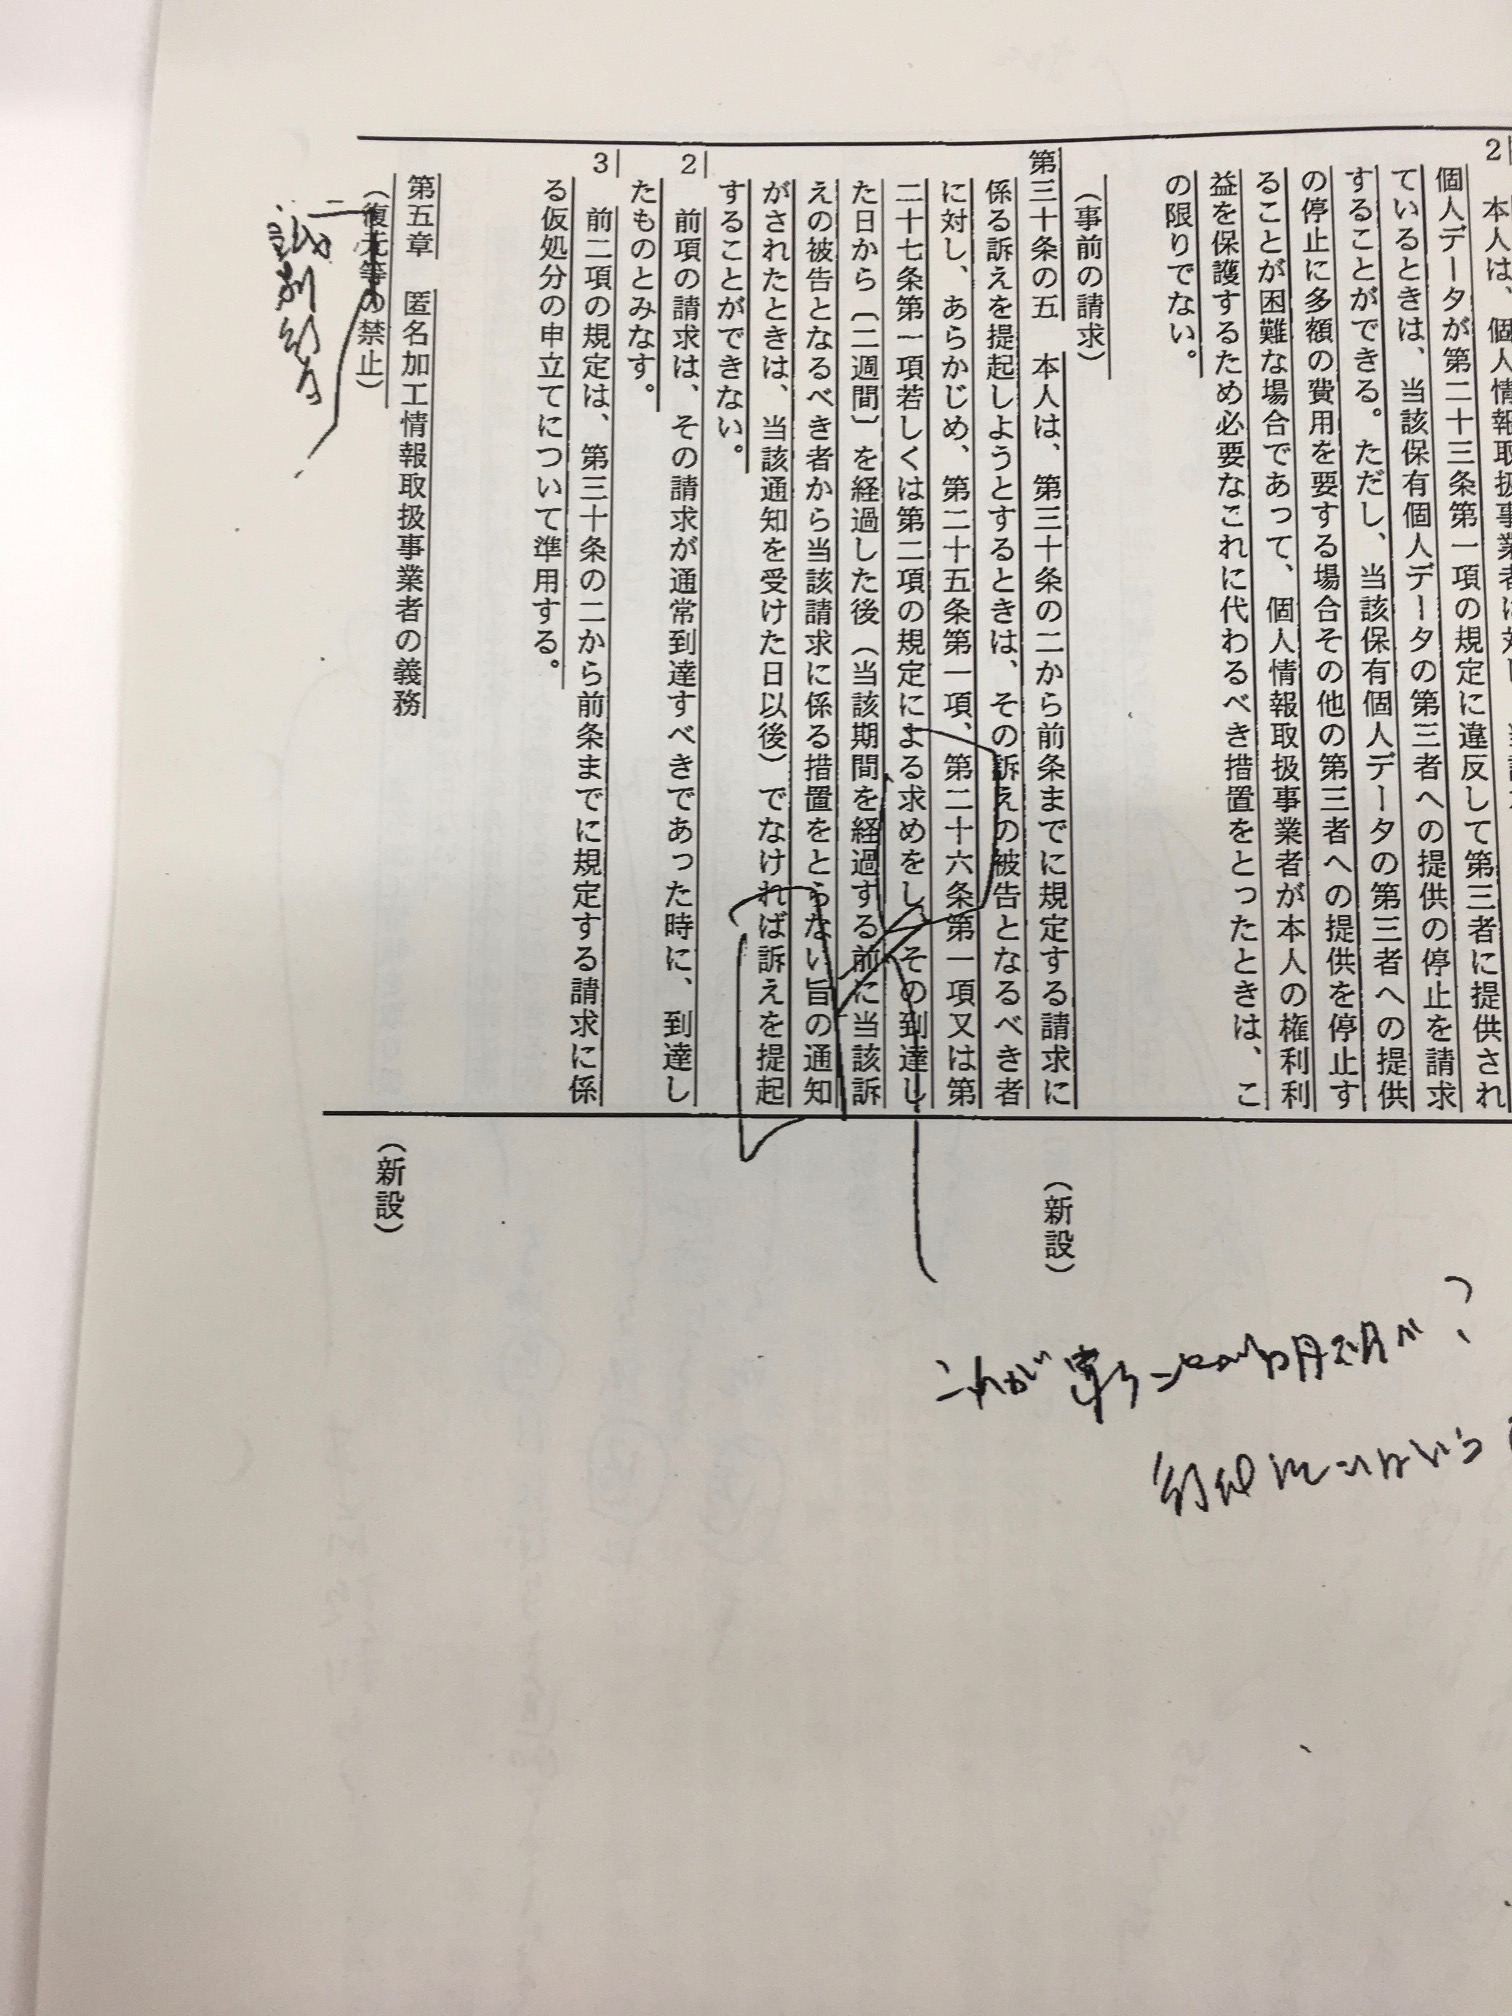 2　本人は、個人情報取扱事業者に対し、
個人データが第二十三条第一項の規定に違反して第三者に提供され
ているときは、当該保有個人データの第三者への提供の停止を請求
することができる。ただし、当該保有個人データの第三者への提供
の停止に多額の費用を要する場合その他の第三者への提供を停止す
ることが困難な場合であって、個人情報取扱事業者が本人の権利利
益を保護するため必要なこれに代わるべき措置をとったときは、こ
の限りでない。
（事前の請求）
第三十条の五　本人は、第三十条の二から前条までに規定する請求に
係る訴えを提起しようとするときは、その訴えの被告となるべき者
に対し、あらかじめ、第二十五条第一項、第二十六条第一項又は第
二十七条第一項若しくは第二項の規定による求めをし、その到達し
た日から〔二週間〕を経過した後（当該期間を経過する前に当該訴
えの被告となるべき者から当該請求に係る措置をとらない旨の通知
がされたときは、当該通知を受けた日以後）でなければ訴えを提起
することができない。
2　前項の請求は、その請求が通常到達すべきであった時に、到達し
たものとみなす。
3　前二項の規定は、第三十条の二から前条までに規定する請求に係
る仮処分の申立てについて準用する。
第五章　匿名加工情報取扱事業者の義務
（復元等の禁止）
識別行為
（新設）
（新設）